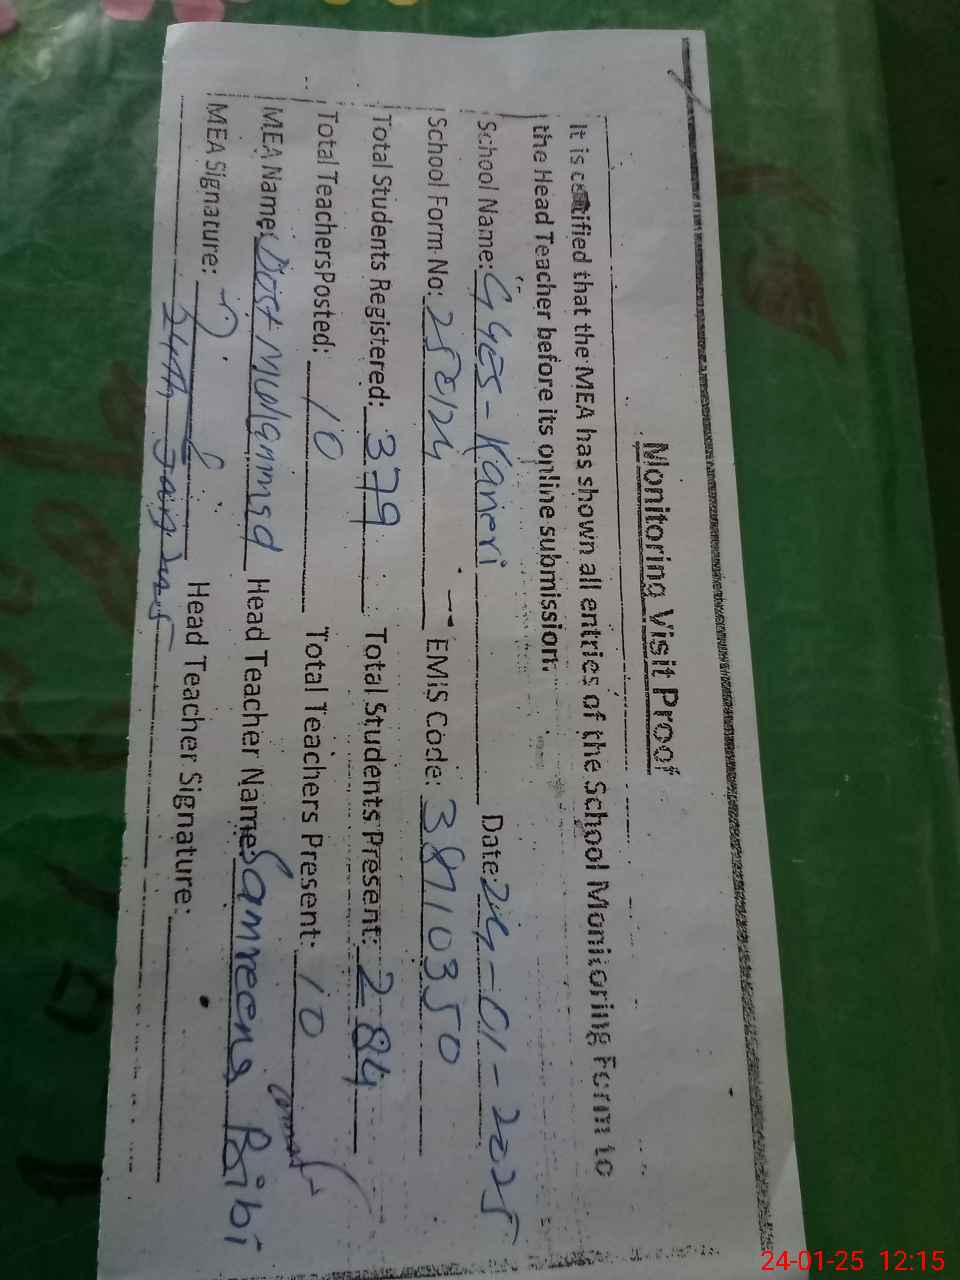 Monitoring Visit Proof
It is certified that the MEA has shown all entries of the School Monitoring Form to
the Head Teacher before its online submission.
School Name: GGES-Kaneri Date: 24-01-2025
School Form No: 25 EMIS Code: 38710350
Total Students Registered: 379 Total Students Present: 284
Total Teachers Posted: 10 Total Teachers Present: 10
MEA Name: Dost Muhammad Head Teacher Name: Samreena Baibi
MEA Signature: Head Teacher Signature:
24th Jan 2025
24-01-25 12:15